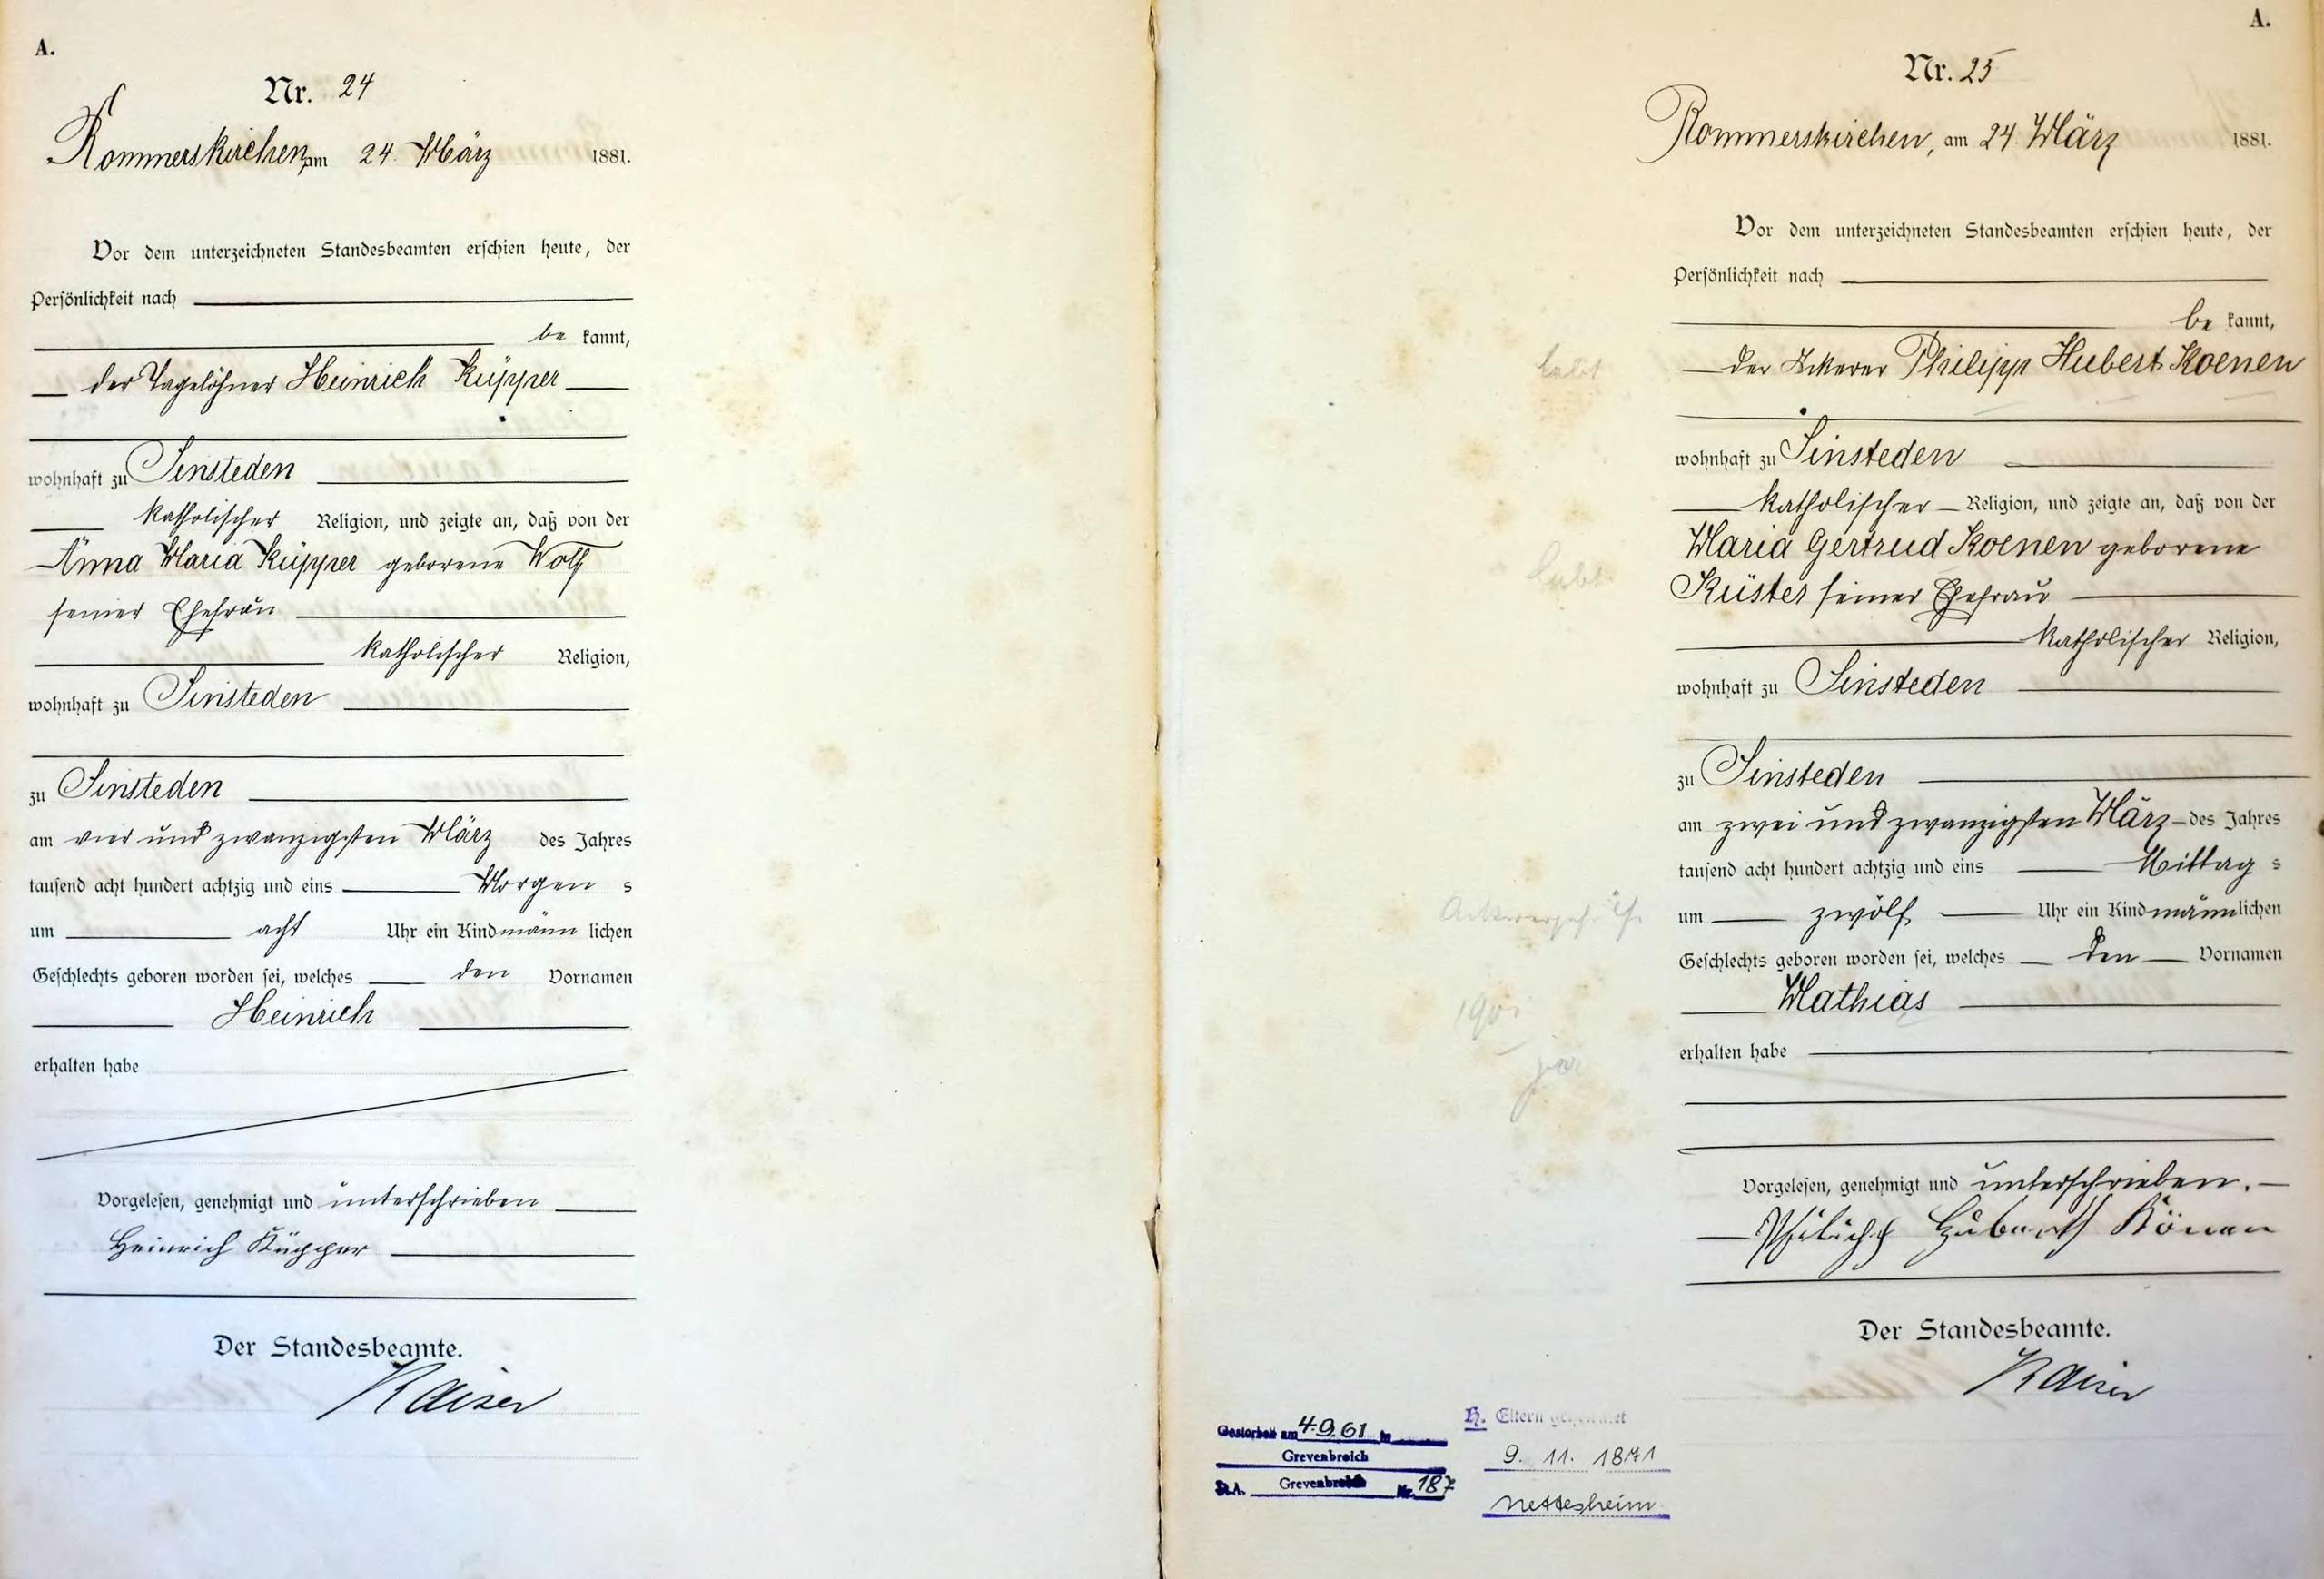 A.
Nr. 24
Rommerskirchen am 24. März 1881.
Vor dem unterzeichneten Standesbeamten erschien heute, der
Persönlichkeit nach
be kannt,
der Tagelöhner Heinrich Küpper
wohnhaft zu Sinsteden
katholischer Religion, und zeigte an, daß von der
Anna Maria Küpper geborene Wolf
seiner Ehefrau
katholischer Religion,
wohnhaft zu Sinsteden
zu Sinsteden
am vier und zwanzigsten März des Jahres
tausend acht hundert achtzig und eins Morgen s
um acht Uhr ein Kind männ lichen
Geschlechts geboren worden sei, welches den Vornamen
Heinrich
erhalten habe
Vorgelesen, genehmigt und unterschrieben
Heinrich Küpper
Der Standesbeamte.
Kaiser
A.
Nr. 25
Rommerskirchen, am 24. März 1881.
Vor dem unterzeichneten Standesbeamten erschien heute, der
Persönlichkeit nach
be kannt,
der Ackerer Philipp Hubert Koenen
wohnhaft zu Sinsteden
katholischer Religion, und zeigte an, daß von der
Maria Gertrud Koenen geborene
Küster seiner Ehefrau
katholischer Religion,
wohnhaft zu Sinsteden
zu Sinsteden
am zwei und zwanzigsten März des Jahres
tausend acht hundert achtzig und eins Mittag s
um zwölf Uhr ein Kind männlichen
Geschlechts geboren worden sei, welches den Vornamen
Mathias
erhalten habe
Vorgelesen, genehmigt und unterschrieben.
Philipp Hubert Könen
Der Standesbeamte.
Kaiser
lebt
lebt
ja
Gestorben am 4.9.61 in
Grevenbroich
St.A. Grevenbroich Nr. 187
H. Eltern geheiratet
9. 11. 1871
Nettesheim